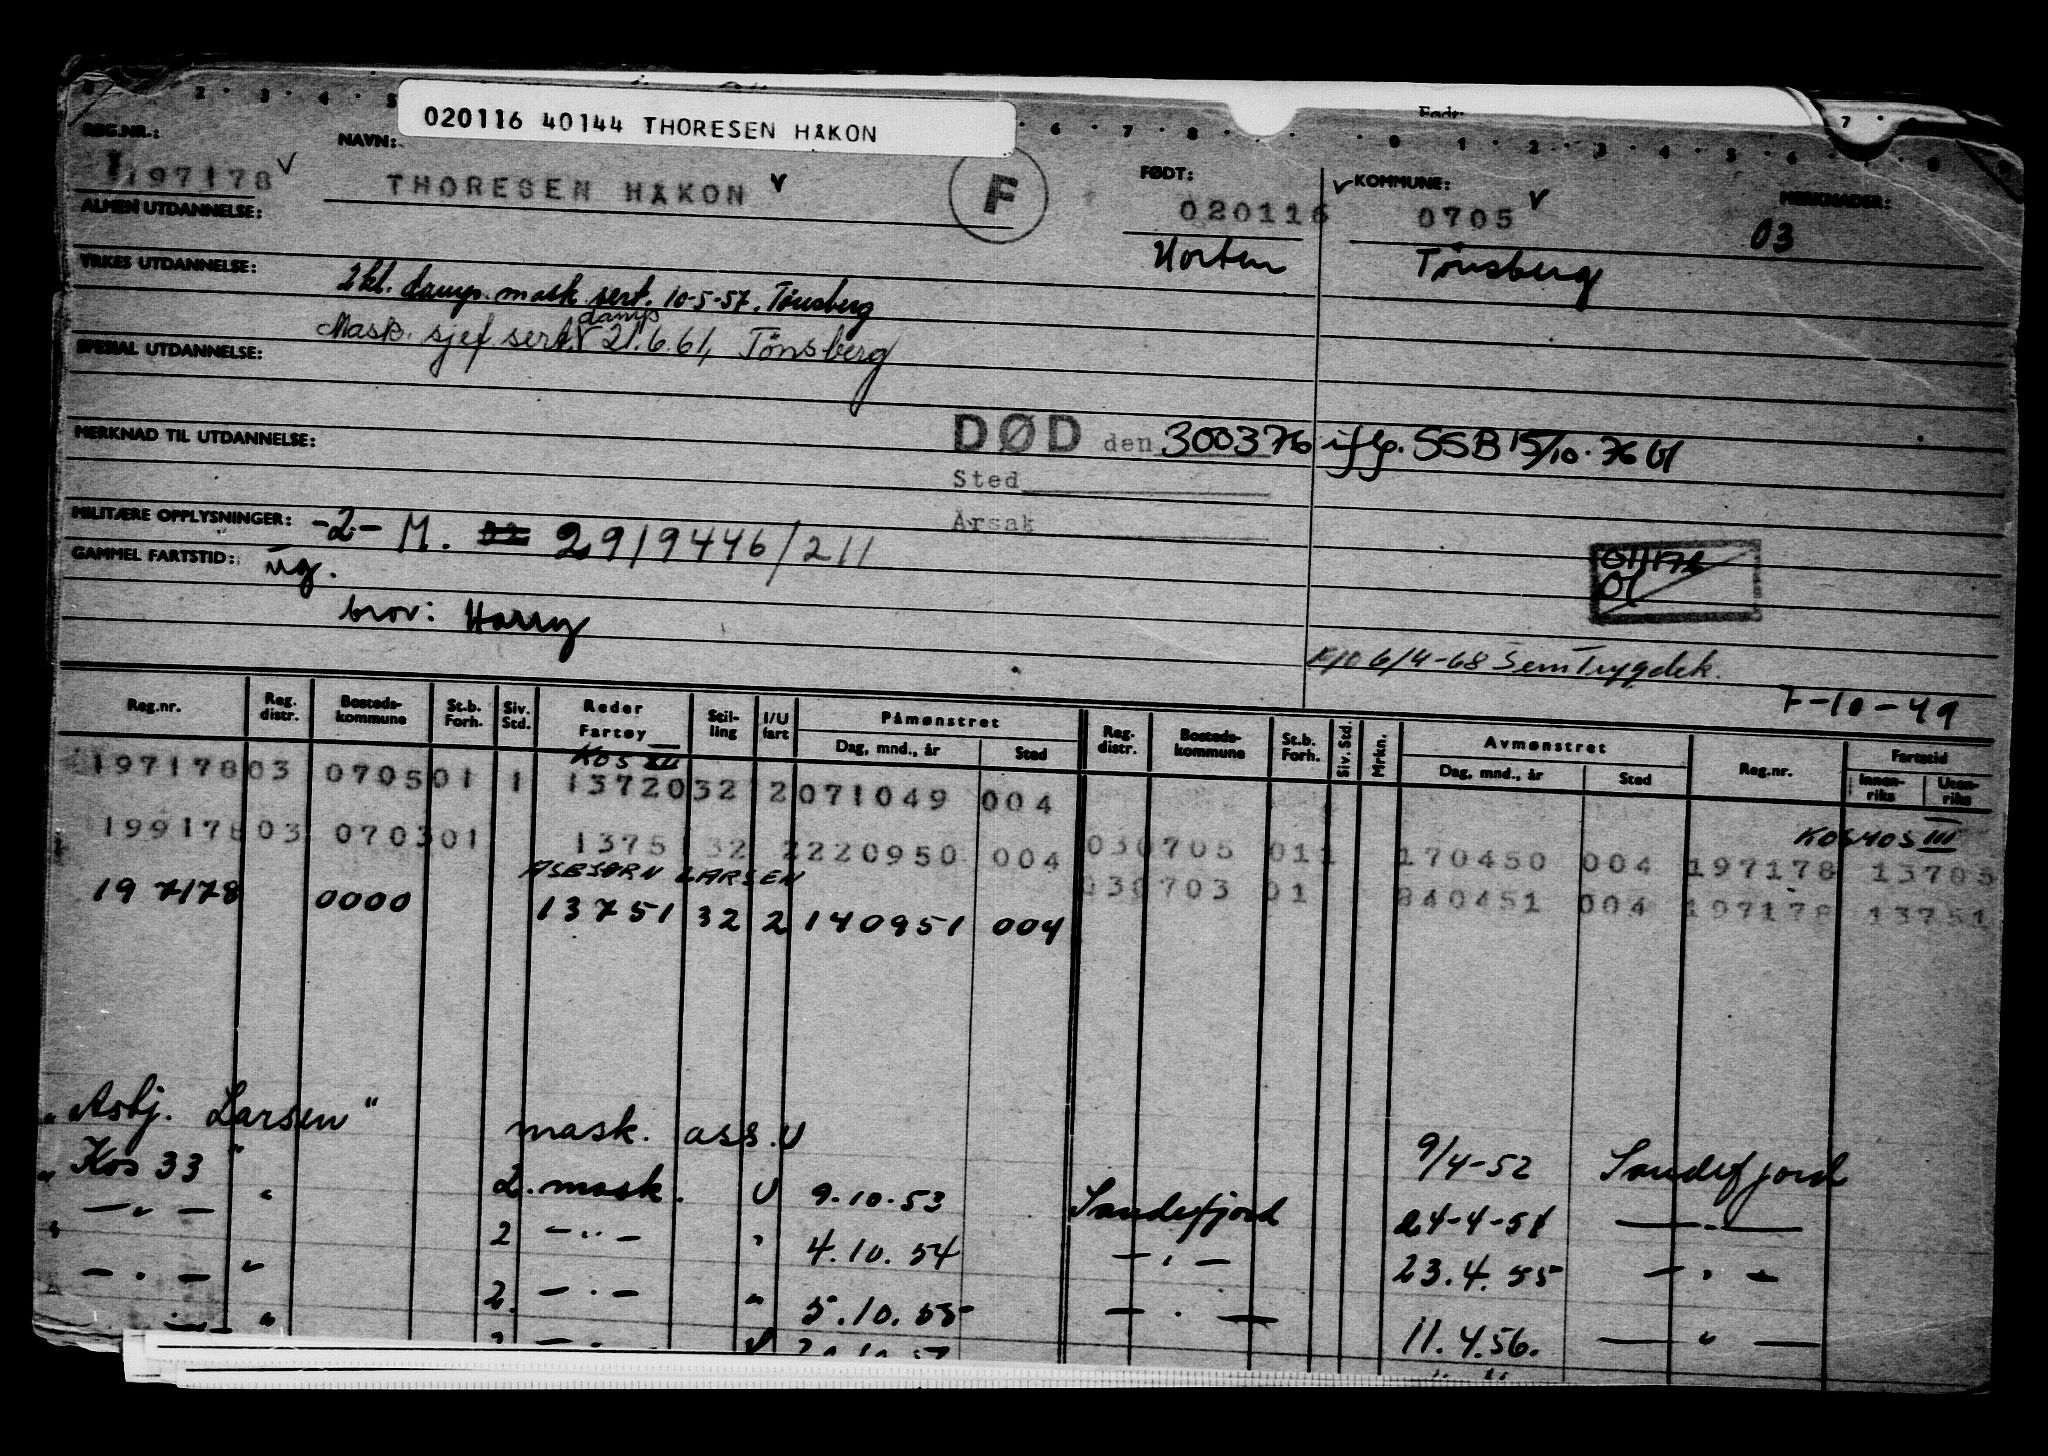 020116 40144 THORESEN HÅKON
Født:
REG.NR.: NAVN: FØDT: KOMMUNE: MERKNADER:
197178 THORESEN HÅKON F 020116 0705 03
ALMEN UTDANNELSE: Horten Tønsberg
YRKES UTDANNELSE: 2 kl. damp. mask. sert. 10-5-57. Tønsberg
Mask. sjef sert. damp 21.6.61, Tönsberg
SPESIAL UTDANNELSE:
MERKNAD TIL UTDANNELSE: DØD den 300376 iflg. SSB 15/10.76
Sted
Årsak
MILITÆRE OPPLYSNINGER: -2- M. 32 2919446/211
GAMMEL FARTSTID: ug.
011176
01
bror: Harry
6/4-68 Sem Trygdek.
7-10-49
Reg.nr. Reg. distr. Bosteds-kommune St.b. Forh. Siv. Std. Reder Fartøy Stil-ling I/U fart Påmønstret Dag, mnd., år Sted Reg. distr. Bosteds-kommune St.b. Forh. Siv. Std. Mrkn. Avmønstret Dag, mnd., år Sted Reg.nr. Fartstid Innen-riks Uten-riks
KOS
197178 03 0705 01 1 13720 32 2 071049 004
KOSMOS III
030705 011 170450 004 197178 13705
199178 03 0703 01 1375 32 2 220950 004
ASBJØRN LARSEN
030703 01 840451 004 197178 13751
197178 0000 13751 32 2 140951 004
"Asbj. Larsen" mask. ass. U 9/4-52 Sandefjord
"Kos 33" 2. mask. U 9.10.53 Sandefjord 24-4-54 — " —
" — " — " 2 — " — " 4.10.54 — " — 23.4.55 — " —
" — " — " 2. — " — " 5.10.55 — " — 11.4.56. — " —